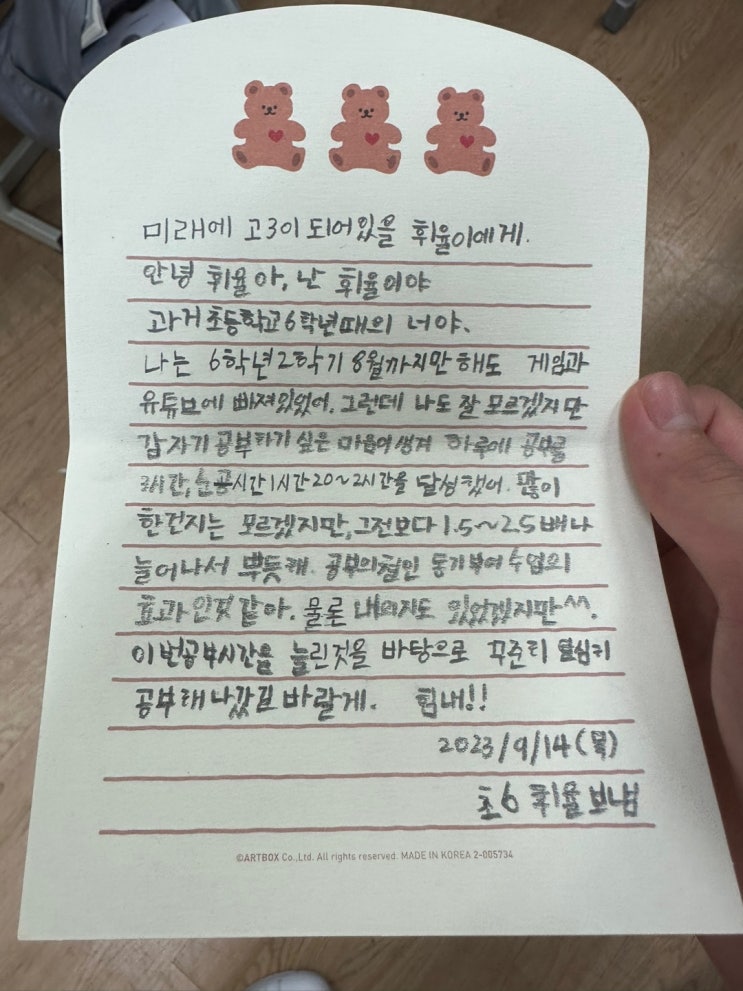 미래에 고3이 되어있을 휘율이에게.
안녕 휘율아, 난 휘율이야
과거 초등학교 6학년때의 너야.
나는 6학년 2학기 8월까지만 해도 게임과
유튜브에 빠져있었어. 그런데 나도 잘 모르겠지만
갑자기 공부하기 싶은 마음이 생겨 하루에 공부를
3시간, 순공시간 1시간 20~2시간을 달성했어. 많이
한건지는 모르겠지만, 그전보다 1.5~2.5배나
늘어나서 뿌듯해. 공부의철인 동기부여 수업의
효과인것 같아. 물론 내의지도 있었겠지만^^.
이번공부시간을 늘린것을 바탕으로 꾸준히 열심히
공부해 나갔길 바랄게. 힘내!!
2023/9/14(목)
초6 휘율 보냄
©ARTBOX Co.,Ltd. All rights reserved. MADE IN KOREA 2-005734